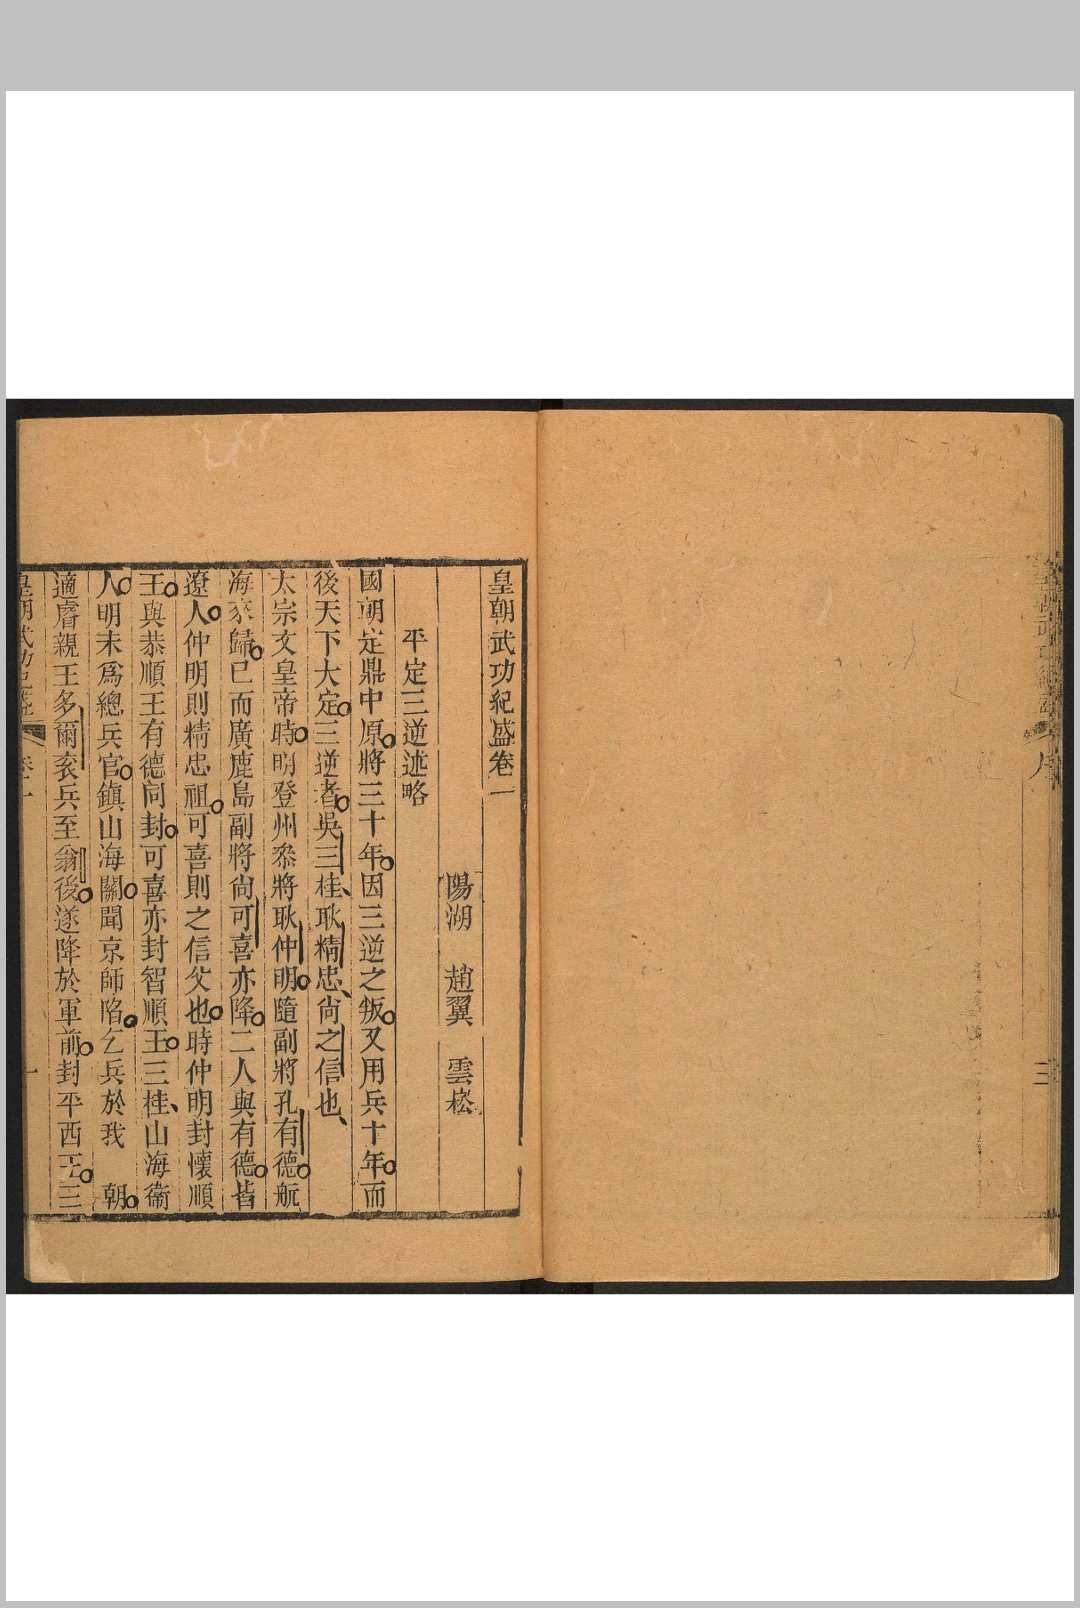 皇朝武功紀盛卷一
陽湖 趙翼 雲崧
平定三逆述略
國朝定鼎中原將三十年因三逆之叛又用兵十年而
後天下大定三逆者吳三桂耿精忠尙之信也
太宗文皇帝時明登州叅將耿仲明隨副將孔有德航
海來歸已而廣鹿島副將尙可喜亦降二人與有德皆
遼人仲明則精忠祖可喜則之信父也時仲明封懷順
王與恭順王有德同封可喜亦封智順王三桂山海衞
人明末爲總兵官鎭山海關聞京師陷乞兵於我 朝
適睿親王多爾袞兵至翁後遂降於軍前封平西王三
皇朝武功紀盛 卷一 一